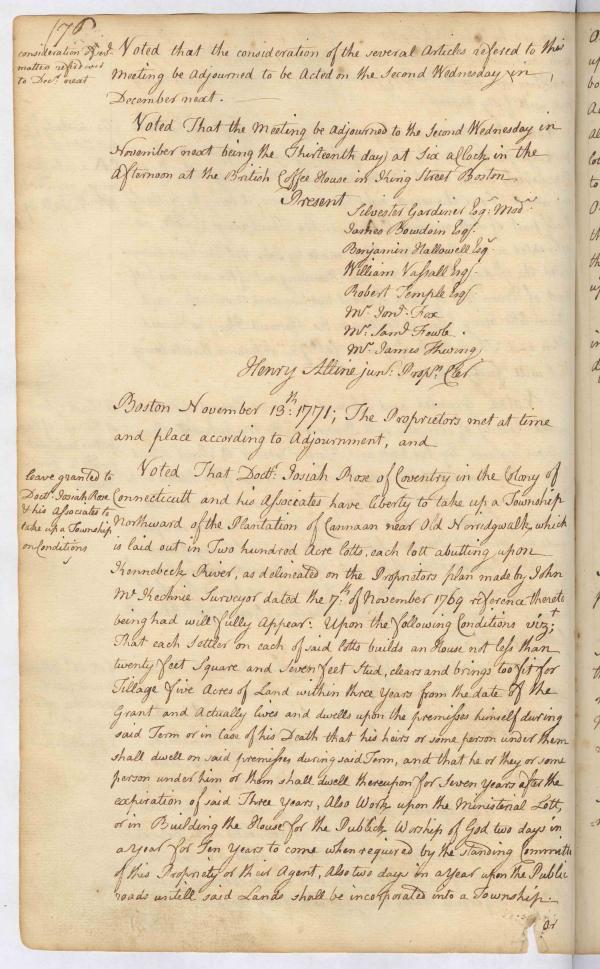 176
consideration of
matters refered over
to Decr. next
Voted that the consideration of the several Articles refered to this
Meeting be Adjourned to be Acted on the Second Wednesday in
December next.
Voted That the Meeting be adjourned to the Second Wednesday in
November next being the Thirteenth day, at Six aClock in the
Afternoon at the British Coffee House in King Street Boston
Present
Silvester Gardiner Esqr. Modr.
James Bowdoin Esqr.
Benjamin Hallowell Esqr.
William Vassall Esqr.
Robert Temple Esqr.
Mr. Jont. Fox
Mr. Saml. Fowle.
Mr. James Thwing
Henry Alline junr. Proprs. Cler
Boston November 13th: 1771; The Proprietors met at time
and place according to Adjournment, and
leave granted to
Doctr. Josiah Rose
& his Associates to
take up a Township
on Conditions
Voted That Doctr. Josiah Rose of Coventry in the Colony of
Connecticutt and his Associates have liberty to take up a Township
Northward of the Plantation of Cannaan near Old Norridgwalk, which
is laid out in Two hundred Acre Lotts, each lott abutting upon
Kennebeck River, as delineated on the Proprietors plan made by John
Mc. Kechnie Surveyor dated the 7th. of November 1769 reference thereto
being had will fully Appear: Upon the following Conditions vizt;
That each Settler on each of said lotts builds an House not less than
twenty feet Square and Seven feet Stud, clears and brings too fit for
Tillage five Acres of Land within three Years from the date of the
Grant and Actually lives and dwells upon the premisses himself during
said Term or in Case of his Death that his heirs or some person under them
shall dwell on said premisses during said Term, and that he or they or some
person under him or them shall dwell thereupon for Seven Years after the
expiration of said Three Years, Also Work upon the Ministerial Lott,
or in Building the House for the Publick Worship of God two days in
a Year for Ten Years to come when required by the Standing Committe
of this Propriety or their Agent, Also two days in a Year upon the Public
roads untill said Lands shall be incorporated into a Township.
or